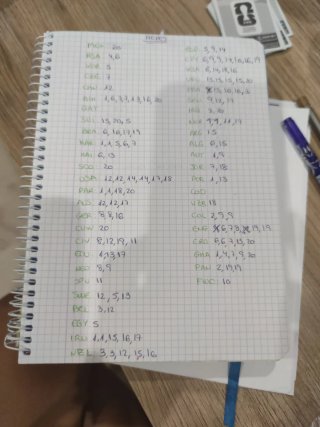 MEX 20
RSA 4,6
KOR 5
CZE 7
CAN 12
BIH 1,6,7,7,13,16,20
QAT
SUI 15,20,5
BRA 6,16,17,19
MAR 1,1,5,6,7
HAI 6,13
SCO 20
USA 12,12,14,14,17,18
PAR 1,1,18,20
AUS 12,12,17
GER 8,8,16
CUW 20
CIV 8,12,19,11
ECU 1,13,17
NED 8,9
JPN 11
SWE 12,5,13
BEL 3,12
EGY 5
IRN 1,1,15,16,17
NZL 3,3,12,15,16
ESP 3,9,14
CPV 6,9,9,14,16,16,19
KSA 6,14,18,16
URU 13,15,15,15,20
FRA 15,16,16,3
SEN 9,12,17
IRQ 3,20
NOR 9,9,11,17
ARG 15
ALG 6,15
AUT 1,9
JOR 7,18
POR 1,13
COD
UZB 18
COL 2,9,9
ENG 6,7,8,19,19
CRO 5,6,7,15,20
GHA 1,4,7,9,10
PAN 2,19,19
FWC 10